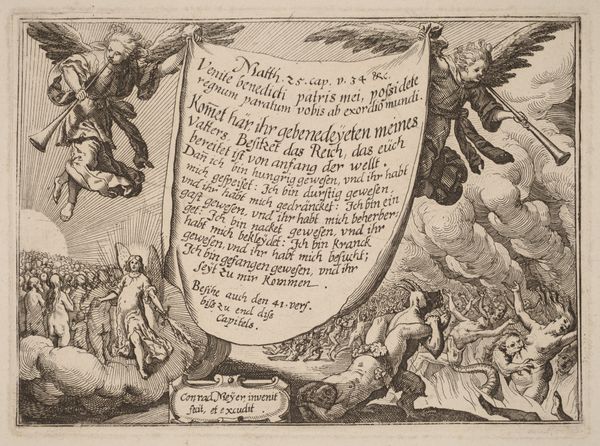 Matth. 25. cap. v. 34 &c.
Venite benedicti patris mei, possidete
regnum paratum vobis ab exordio mundi.
Kom̃et här ihr gebenedeyeten meines
Vatters, Besitzet das Reich, das eüch
bereitet ist von anfang der wellt.
Dañ ich bin hungrig gewesen, vnd ihr habt
mich gespeiset: Ich bin durstig gewesen,
vnd ihr habt mich gedräncket: Ich bin ein
gast gewesen, vnd ihr habt mich beherber,
get: Ich bin nacket gewesen, vnd ihr
habt mich bekleydet: Ich bin Kranck
gewesen, vnd ihr habt mich besucht;
Ich bin gefangen gewesen, vnd ihr
seyt zu mir Kommen.
Besihe auch den 41. vers.
biß zu end diß
Capitels.
Conrad Meÿer invenit
fecit, et excudit